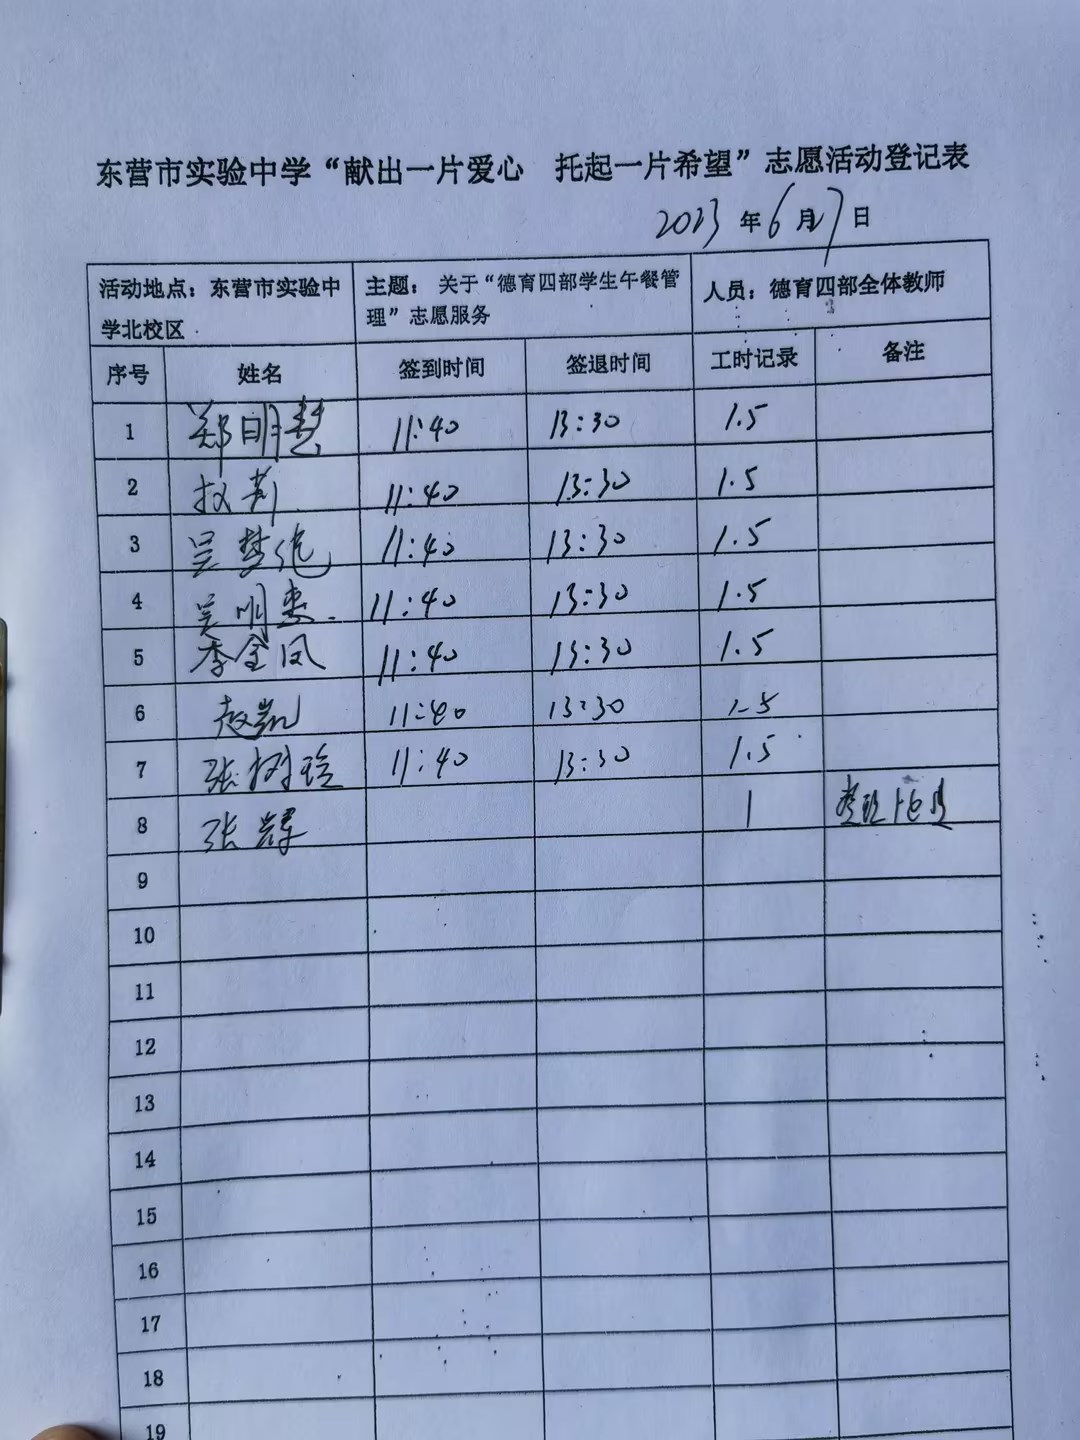 东营市实验中学“献出一片爱心　托起一片希望”志愿活动登记表
2023 年 6 月 7 日
活动地点：东营市实验中学北校区 主题：关于“德育四部学生午餐管理”志愿服务 人员：德育四部全体教师
序号 姓名 签到时间 签退时间 工时记录 备注
1 郑明慧 11:40 13:30 1.5
2 莉 11:40 13:30 1.5
3 吴梦 11:40 13:30 1.5
4 吴明 11:40 13:30 1.5
5 李金凤 11:40 13:30 1.5
6 赵凯 11:40 13:30 1.5
7 张树玲 11:40 13:30 1.5
8 张辉 1
9
10
11
12
13
14
15
16
17
18
19